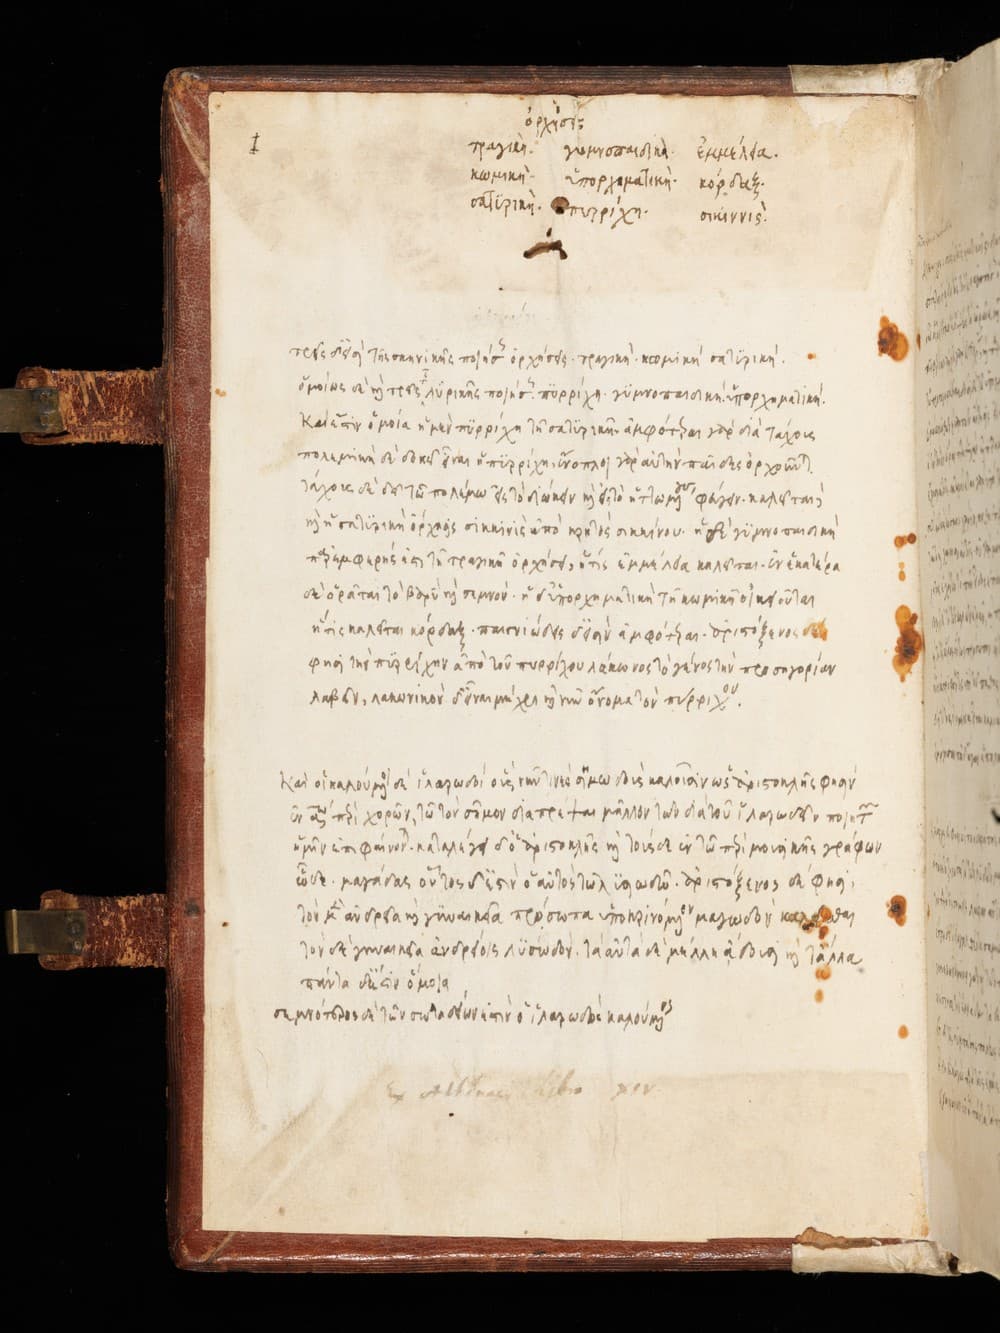 1
ὀρχήσεις
τραγική. γυμνοπαιδική. ἐμμέλεια.
κωμική. ὑπορχηματική. κόρδαξ.
σατυρική. πυρρίχη. σίκιννις.
τρεῖς δ' εἰσὶ τῆς σκηνικῆς ποιήσεως ὀρχήσεις. τραγική. κωμική σατυρική.
ὁμοίως δὲ καὶ τρεῖς τῆς λυρικῆς ποιήσεως. πυρρίχη. γυμνοπαιδική. ὑπορχηματική.
καί ἐστιν ὁμοία ἡ μὲν πυρρίχη τῇ σατυρικῇ. ἀμφότεραι γὰρ διὰ τάχους
πολεμικὴ δὲ δοκεῖ εἶναι ἡ πυρρίχη. ἔνοπλοι γὰρ αὐτὴν παῖδες ὀρχοῦνται.
τάχους δὲ δεῖ τῷ πολέμῳ εἰς τὸ διώκειν καὶ εἰς τὸ ἡττωμένους φεύγειν. καλεῖται δ'
καὶ ἡ σατυρικὴ ὄρχησις σίκιννις ἀπὸ σικίννου. ἡ δὲ γυμνοπαιδικὴ
παρεμφερής ἐστι τῇ τραγικῇ ὀρχήσει, ἥτις ἐμμέλεια καλεῖται. ἐν ἑκατέρᾳ
δὲ ὁρᾶται τὸ βαρὺ καὶ σεμνόν. ἡ δ' ὑπορχηματικὴ τῇ κωμικῇ οἰκειοῦται
ἥτις καλεῖται κόρδαξ. παιγνιώδεις δ' εἰσὶν ἀμφότεραι. ἀριστόξενος δέ
φησι τὴν πυρρίχην ἀπὸ τοῦ πυρρίχου λάκωνος τὸ γένος τὴν προσηγορίαν
λαβεῖν, λακωνικὸν δ' εἶναι μέχρι καὶ νῦν ὄνομα τὸν πύρριχον.
Καὶ οἱ καλούμενοι δὲ ἱλαρωδοί οὓς νῦν τινὲς σιμωδοὺς καλοῦσιν ὡς ἀριστοκλῆς φησὶν
ἐν αʹ περὶ χορῶν, τῷ τὸν σῖμον διαπρέψαι μᾶλλον τῶν διὰ τοῦ ἱλαρωδεῖν ποιητῶν
ἡμῖν ἐπιφαίνονται. καταλέγει δ' ὁ ἀριστοκλῆς καὶ τούσδε ἐν τῷ περὶ μουσικῆς γράφων
ὧδε. μαγῳδὸς οὗτος δ' ἐστὶν ὁ αὐτὸς τῷ λυσιωδῷ. ἀριστόξενος δέ φησι,
τὸν μὲν ἀνδρεῖα καὶ γυναικεῖα πρόσωπα ὑποκρινόμενον μαγωδὸν καλεῖσθαι
τὸν δὲ γυναικεῖα ἀνδρείοις λυσιωδόν. τὰ αὐτὰ δὲ μέλη ᾄδουσι καὶ τἆλλα
πάντα δ' ἐστὶν ὅμοια
σεμνότερος δὲ τῶν τοιούτων ἐστὶν ὁ ἱλαρωδὸς καλούμενος
Ex Athenaei Libro xiv.